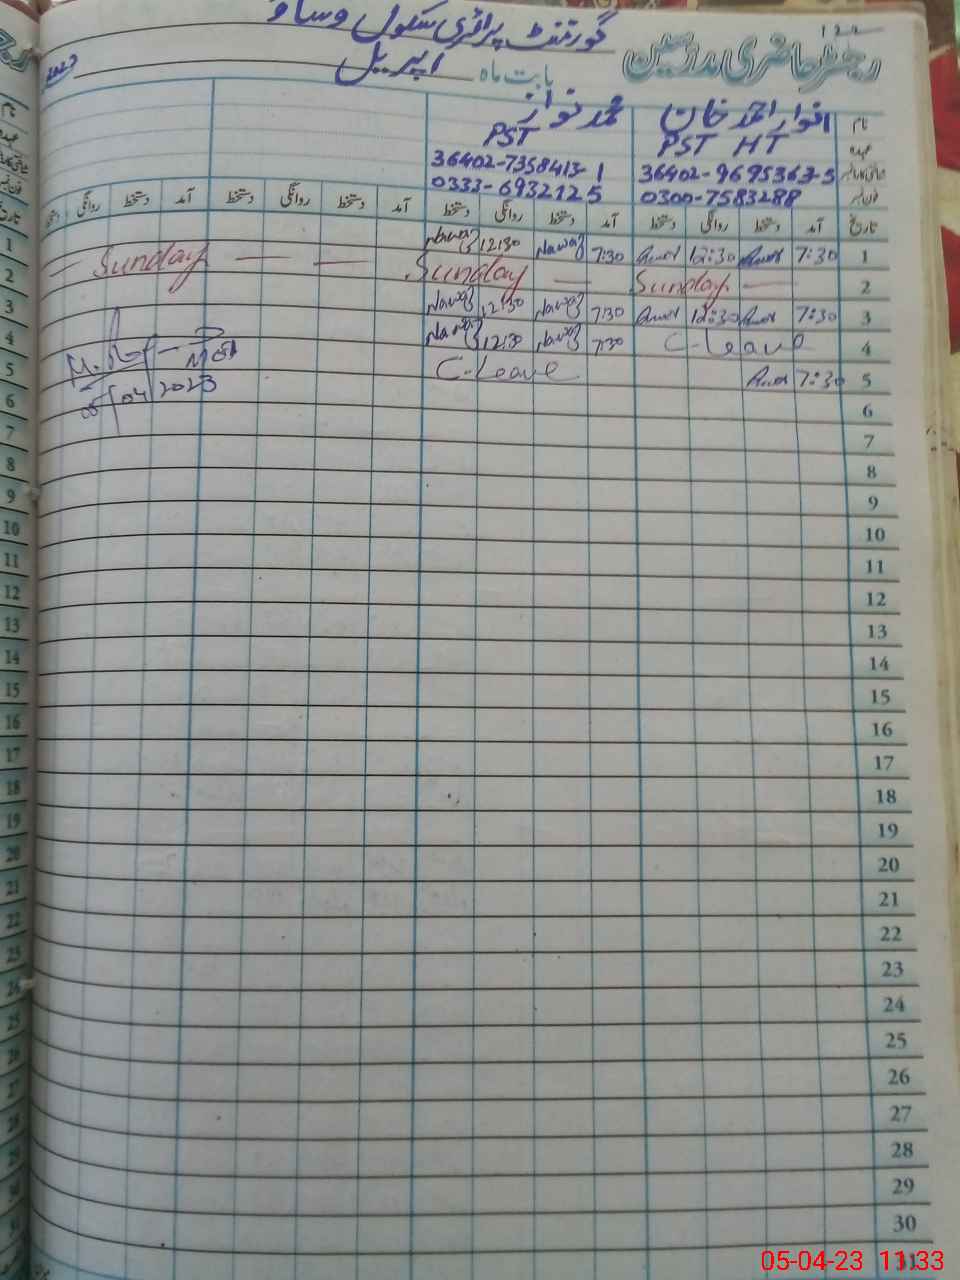 رجسٹر حاضری مدرسین
گورنمنٹ پرائمری سکول
بابت ماہ اپریل 2023
نام انوار احمد خان محمد نواز
عہدہ PST HT PST
36402-9695363-5 36402-7358413-1
فون نمبر 0300-7583288 0333-6932125
تاریخ آمد دستخط روانگی دستخط آمد دستخط روانگی دستخط آمد دستخط روانگی دستخط آمد دستخط روانگی دستخط
1 7:30 Anwar 12:30 Anwar 7:30 Nawaz 12:30 Nawaz
2 Sunday Sunday Sunday
3 7:30 Anwar 12:30 Anwar 7:30 Nawaz 12:30 Nawaz
4 C-Leave 7:30 Nawaz 12:30 Nawaz
5 7:30 Anwar C-Leave
05/04/2023
6
7
8
9
10
11
12
13
14
15
16
17
18
19
20
21
22
23
24
25
26
27
28
29
30
31
05-04-23 11:33